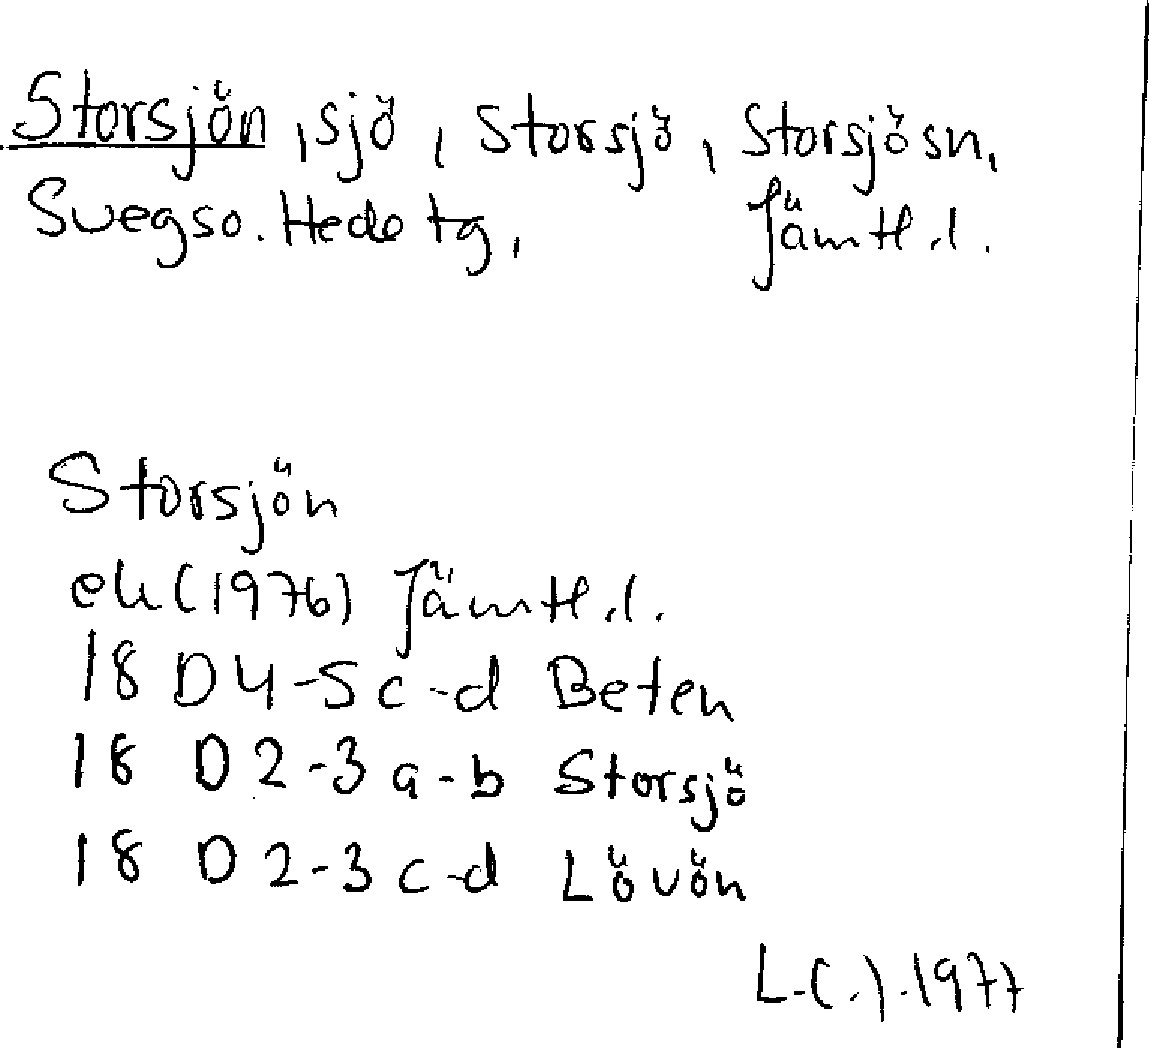 Storsjön, sjö, Storsjö, Storsjösn,
Svegso. Hede tg, Jämtl.l.
Storsjön
ek (1976) Jämtl.l.
18 D 4-5 c-d Beten
18 D 2-3 a-b Storsjö
18 D 2-3 c-d Lövön
1977